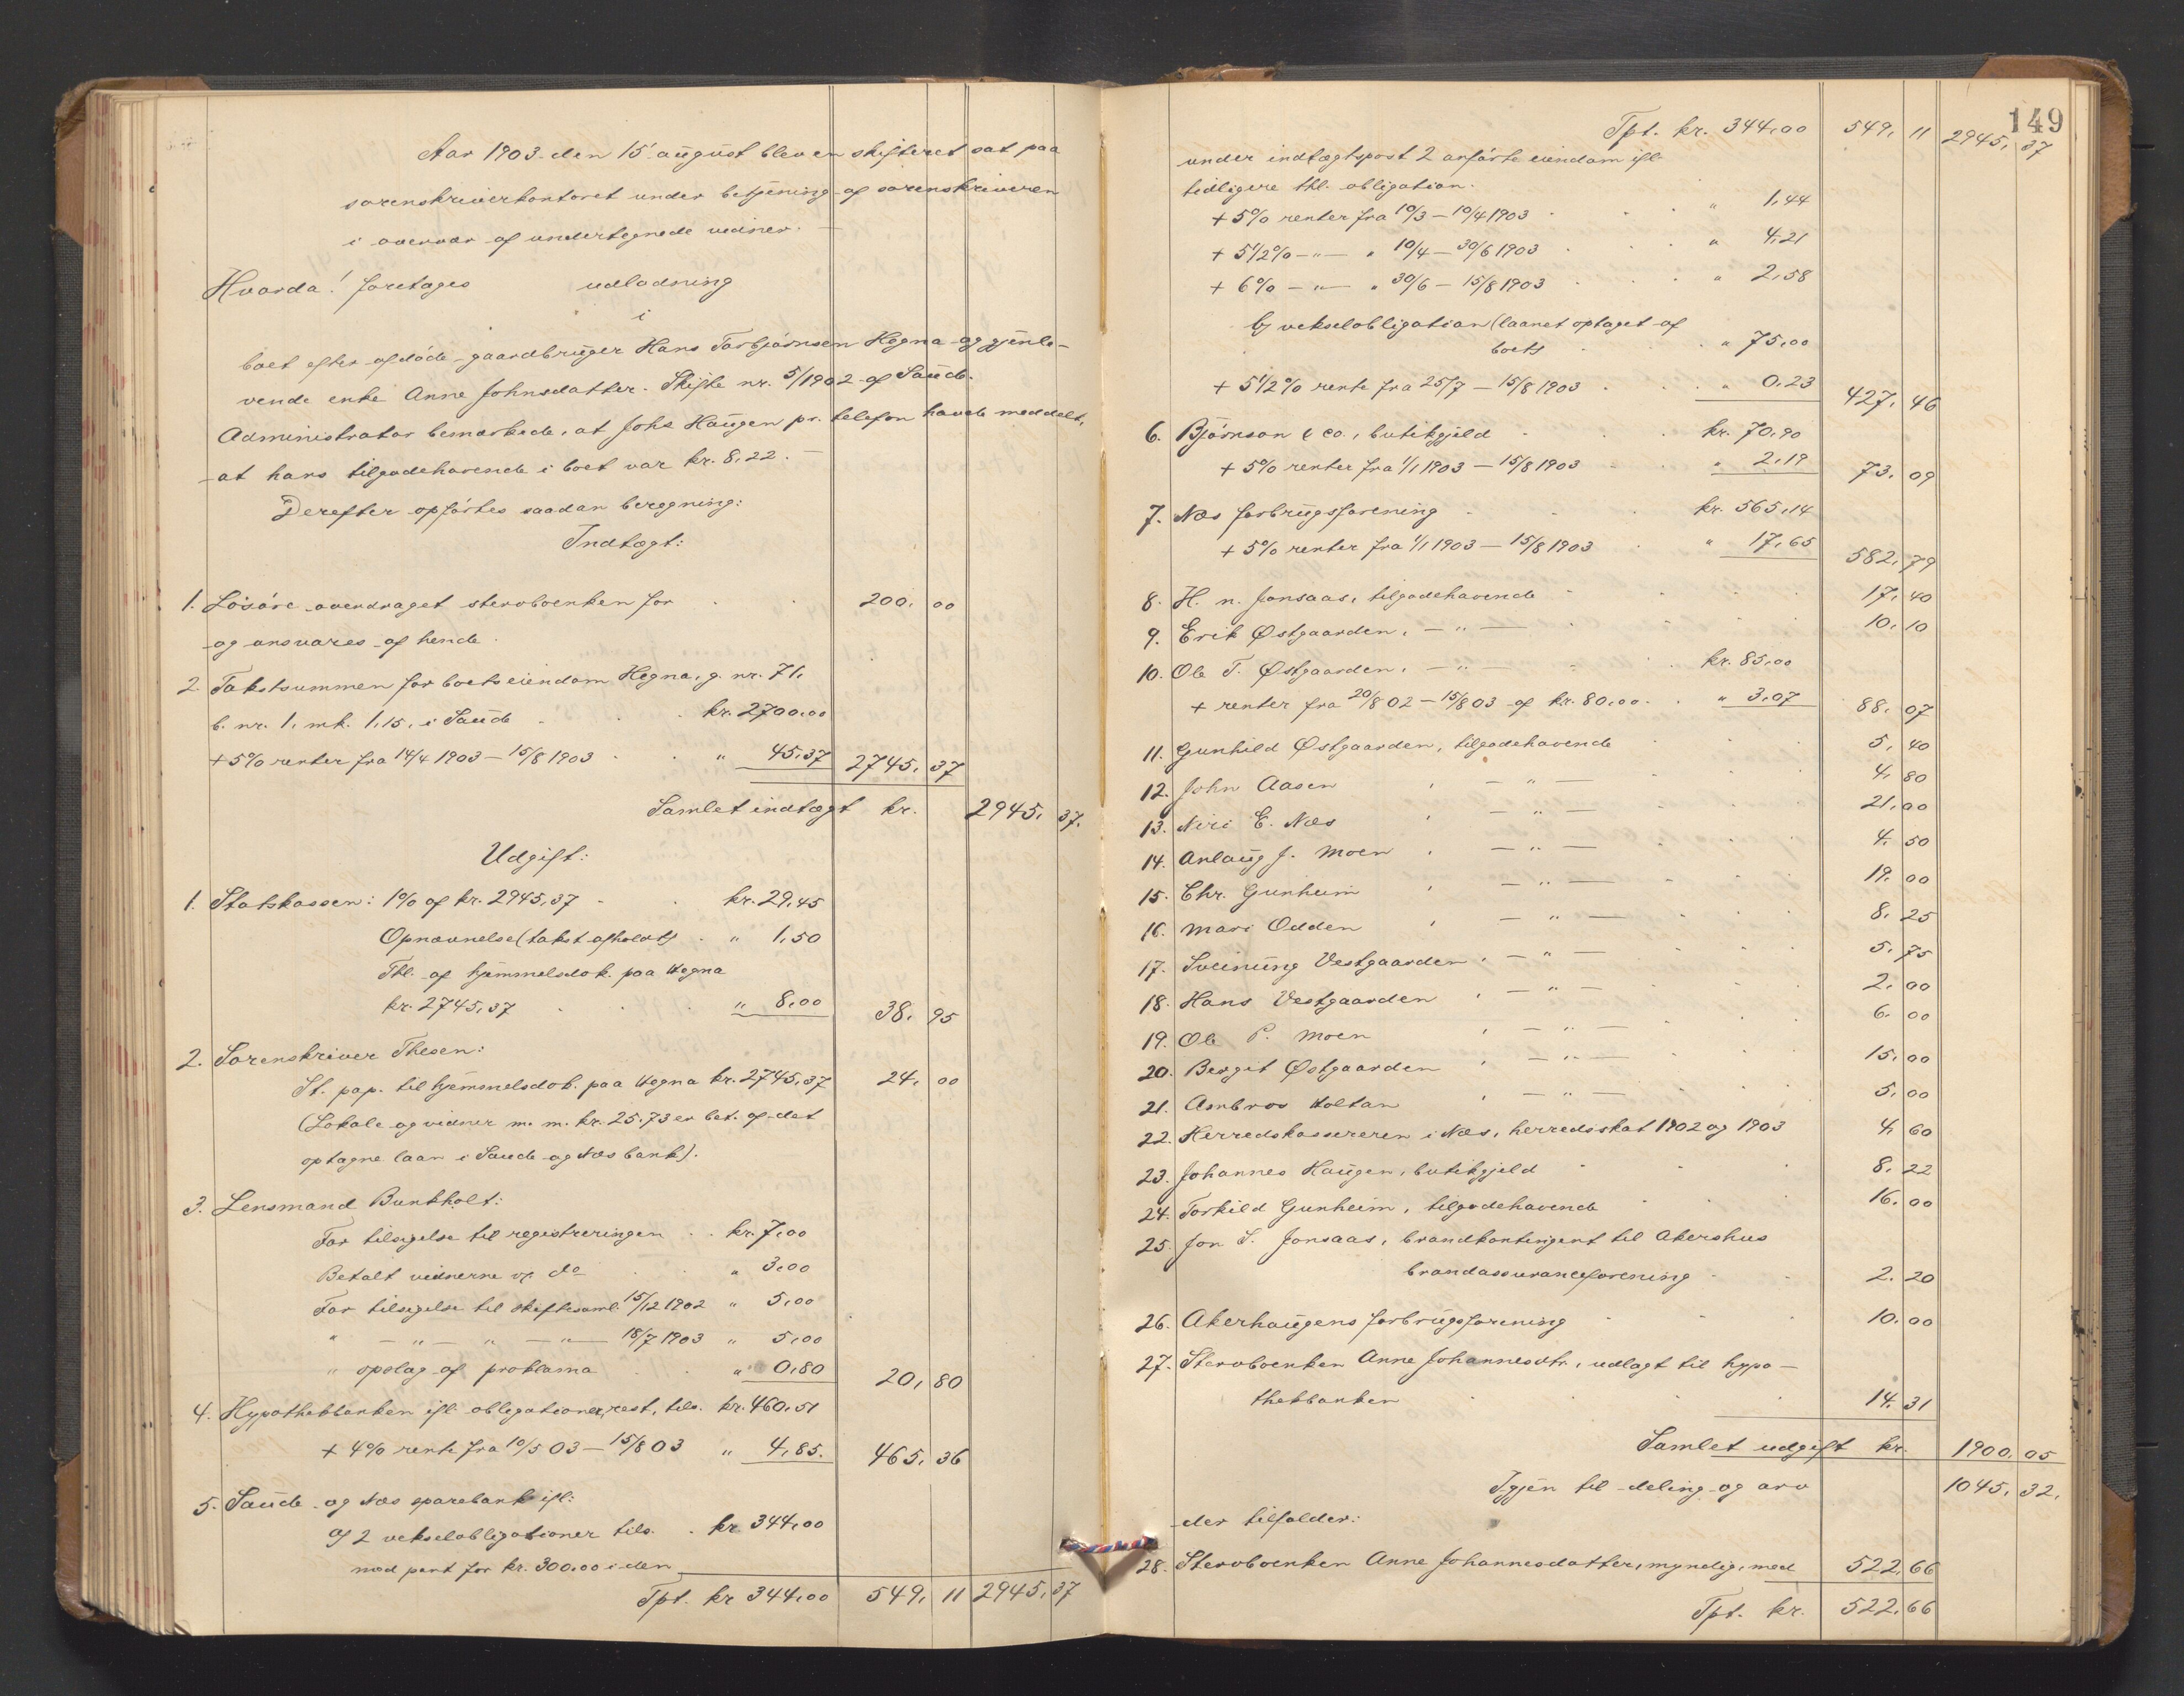 Aar 1903 den 15' august blev en skifteret sat paa
sorenskriverkontoret under betjening af sorenskriveren
i overvær af undertegnede vidner. —
Hvorda! foretages udlodning
i
boet efter afdøde gaardbruger Hans Torbjørnsen Hegna og gjenle-
vende enke Anne Johnsdatter. Skifte nr. 5/1902 af Saude.
Administrator bemærkede, at Johs Haugen pr. telefon havde meddelt,
at hans tilgodehavende i boet var kr. 8,22. —
Derefter opførtes saadan beregning:
Indtægt:
1. Løsøre overdraget stervboenken for 200, 00
og ansvares af hende.
2. Takstsummen for boets eiendom Hegna, g. nr. 71,
b. nr. 1, mk. 1,15, i Saude kr. 2700,00
+ 5% renter fra 14/4 1903 — 15/8 1903 " 45,37 2745, 37
Samlet indtægt kr. 2945, 37.
Udgift:
1. Statskassen: 1% af kr. 2945,37 kr. 29,45
Opnævnelse (takst afholdt) " 1,50
Thl. af hjemmelsdok. paa Hegna
kr. 2745,37 " 8,00 38, 95
2. Sorenskriver Thesen:
St. pap. til hjemmelsdok. paa Hegna kr. 2745,37 24, 00
(Lokale og vidner m. m. kr. 25.73 er bet. af det
optagne laan i Saude og Næs bank).
3. Lensmand Bunkholt:
For tilsigelse til registreringen kr. 7,00
Betalt vidnerne v. do " 3,00
For tilsigelse til skiftesaml. 15/12 1902 " 5,00
" — " — " — " — 18/7 1903 " 5,00
" opslag af proklama " 0,80 20, 80
4. Hypothekbanken ifl. obligationer, rest, tils. kr. 460,51
+ 4% rente fra 10/5 03 — 15/8 03 " 4,85. 465, 36
5. Saude og Næs sparebank ifl:
a) 2 vekselobligationer tils. kr 344,00
mod pant for kr. 300,00 i den
Tpt. kr 344,00 549, 11 2945, 37
149
Tpt. kr. 344,00 549, 11 2945, 37
under indtægtspost 2 anførte eiendom ifl.
tidligere thl. obligation.
+ 5% renter fra 10/3 — 10/4 1903 " 1,44
+ 5 1/2% — " — " 10/4 — 30/6 1903 " 4,21
+ 6% — " — " 30/6 — 15/8 1903 " 2,58
b) vekselobligation (laanet optaget af
boet) " 75,00
+ 5 1/2% rente fra 25/7 — 15/8 1903 " 0,23 427, 46
6. Bjørnson & co., butikgjeld kr. 70,90
+ 5% renter fra 1/1 1903 — 15/8 1903 " 2,19 73, 09
7. Næs forbrugsforening kr. 565,14
+ 5% renter fra 1/1 1903 — 15/8 1903 " 17,65 582, 79
8. H. n. Jonsaas, tilgodehavende 17, 40
9. Erik Østgaarden, — " — 10, 10
10. Ole T. Østgaarden, — " — kr. 85,00
+ renter fra 20/8 02 — 15/8 03 af kr. 80,00 " 3,07 88, 07
11. Gunhild Østgaarden, tilgodehavende 5, 40
12. John Aasen , — " — 4, 80
13. Niri E. Næs , — " — 21, 00
14. Anlaug J. Moen , — " — 4, 50
15. Chr. Gunheim , — " — 19. 00
16. Mari Odden , — " — 8, 25
17. Sveinung Vestgaarden , — " — 5, 75
18. Hans Vestgaarden , — " — 2, 00
19. Ole P. Moen , — " — 6. 00
20. Bergit Østgaarden , — " — 15, 00
21. Ambros Holtan , — " — 5, 00
22. Herredskassereren i Næs, herredsskat 1902 og 1903 4, 60
23. Johannes Haugen, butikgjeld 8, 22
24. Torkild Gunheim, tilgodehavende 16, 00
25. Jon S. Jonsaas, brandkontingent til Akershus
brandassuranceforening 2. 20
26. Akerhaugens forbrugsforening 10, 00
27. Stervboenken Anne Johannesdtr., udlagt til hypo-
thekbanken 14, 31
Samlet udgift kr. 1900, 05
Igjen til deling og arv 1045, 32,
der tilfalder:
28. Stervboenken Anne Johannesdatter, myndig, med 522, 66
Tpt. kr. 522, 66